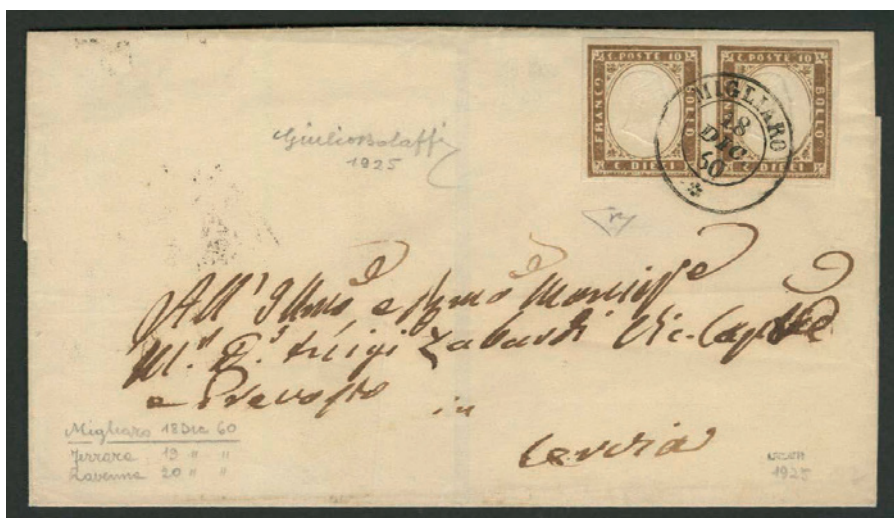 C. POSTE 10
FRANCO
BOLLO
C. DIECI
C. POSTE 10
BOLLO
C. DIECI
MIGLIARO
18
DIC
60
Giulio Bolaffi
1925
All' Illmo e
Luigi Vic.
e Prevosto
in
Cervia
Migliaro 18 Dic 60
Ferrara 19 " "
Ravenna 20 " "
1925